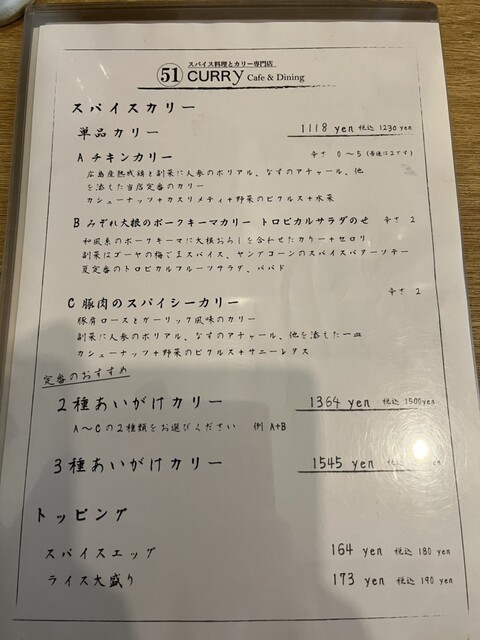 スパイス料理とカリー専門店
51 CURRy Cafe & Dining
スパイスカリー
単品カリー 1118 yen 税込 1230 yen
A チキンカリー 辛さ 0～5 (普通は2です)
広島産熟成鶏と副菜に人参のポリアル、なすのアチャール、他
を添えた当店定番のカリー
カシューナッツ+カスリメティ+野菜のピクルス+水菜
B みぞれ大根のポークキーマカリー トロピカルサラダのせ 辛さ 2
和風系のポークキーマに大根おろしを合わせたカリー+セロリ
副菜はゴーヤの梅ごまスパイス、ヤングコーンのスパイスバターソテー
夏定番のトロピカルフルーツサラダ、パパド
C 豚肉のスパイシーカリー 辛さ 2
豚肩ロースとガーリック風味のカリー
副菜に人参のポリアル、なすのアチャール、他を添えた一皿
カシューナッツ+野菜のピクルス+サニーレタス
定番のおすすめ
2種あいがけカリー 1364 yen 税込 1500yen
A～Cの2種類をお選びください 例 A+B
3種あいがけカリー 1545 yen 税込
トッピング
スパイスエッグ 164 yen 税込 180 yen
ライス大盛り 173 yen 税込 190 yen